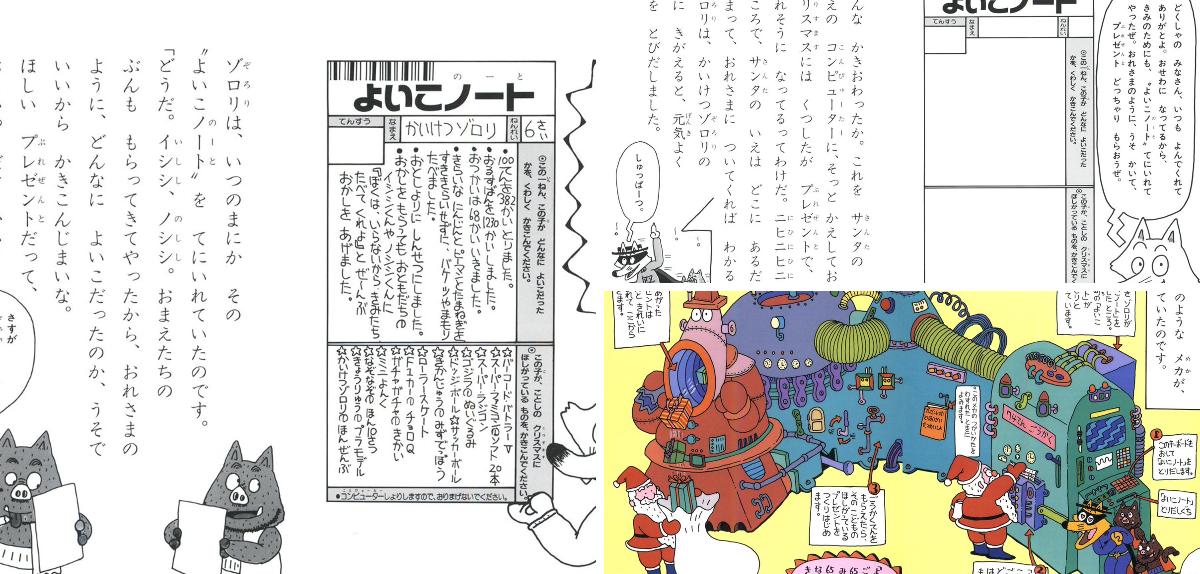 ゾロリは、いつのまにか その
“よいこノート”を てにいれていたのです。
「どうだ。イシシ、ノシシ。おまえたちの
ぶんも もらってきてやったから、おれさまの
ように、どんなに よいこだったのか、うそで
いいから かきこんじまいな。
ほしい プレゼントだって、
さすが
よいこノート
てんすう
なまえ
かいけつゾロリ
ねんれい
6さい
◎この一ねん、この子が どんなに よいこだった
かを、くわしく かきこんでください。
●100てんを382かいとりました。
●おるすばんを1230かいしました。
●おつかいは48かいいきました。
●きらいな にんじんと ピーマンと たまねぎを
すききらいせずに、バケツやまもり
たべました。
●おとしよりに しんせつにしました。
●おかしを もらっても おともだちの
イシシくんや ノシシくんに
『ぼくは、いらないから きみたち
たべてくれよ』と ぜーんぶ
おかしを あげました。
◎この子が、ことしの クリスマスに
ほしがっている ものを、かきこんでください。
☆バーコードバトラーⅡ
☆スーパーファミコンのソフト20本
☆スーパーラジコン
☆ゴジラの ぬいぐるみ
☆ドッジボール☆サッカーボール
☆ローラースケート
☆ミニよんく
☆なぞなぞの ほん10さつ
☆きょうりゅうの プラモデル
☆かいけつゾロリの ほん ぜんぶ
●コンピューターしょりしますので、おりまげないでください。
んな かきおわったか。これを サンタの
えの コンピューターに、そっと かえしてお
リスマスには くつしたが プレゼントで、
れそうに なってるってわけだ。ニヒヒニヒ
ころで、サンタの いえは どこに あるだ
まって、おれさまに ついてくれば わかる
ロリは、かいけつゾロリの
に きがえると、元気よく
を とびだしました。
しゅっぱーつ。
よいこノート
てんすう
なまえ
ねんれい
◎この一ねん、この子が どんなに よいこだった
かを、くわしく かきこんでください。
◎この子が、ことしの クリスマスに
ほしがっている ものを、かきこんでく
どくしゃの みなさん、いつも よんでくれて
ありがとよ。おせわに なってるから、
きみのためにも、“よいこノート”てにいれて
やったぜ。おれさまのように、うそ かいて、
プレゼント どっちゃり もらおうぜ。
のような メカが、
ていたのです。
このキーボードを
おして
ないこノートを
とりだします。
ないこノート
とりだしぐち
ごうかくてんを
もらえたら、
その こどもの
ほしがっている
プレゼントを
つくりはじめ
ます。